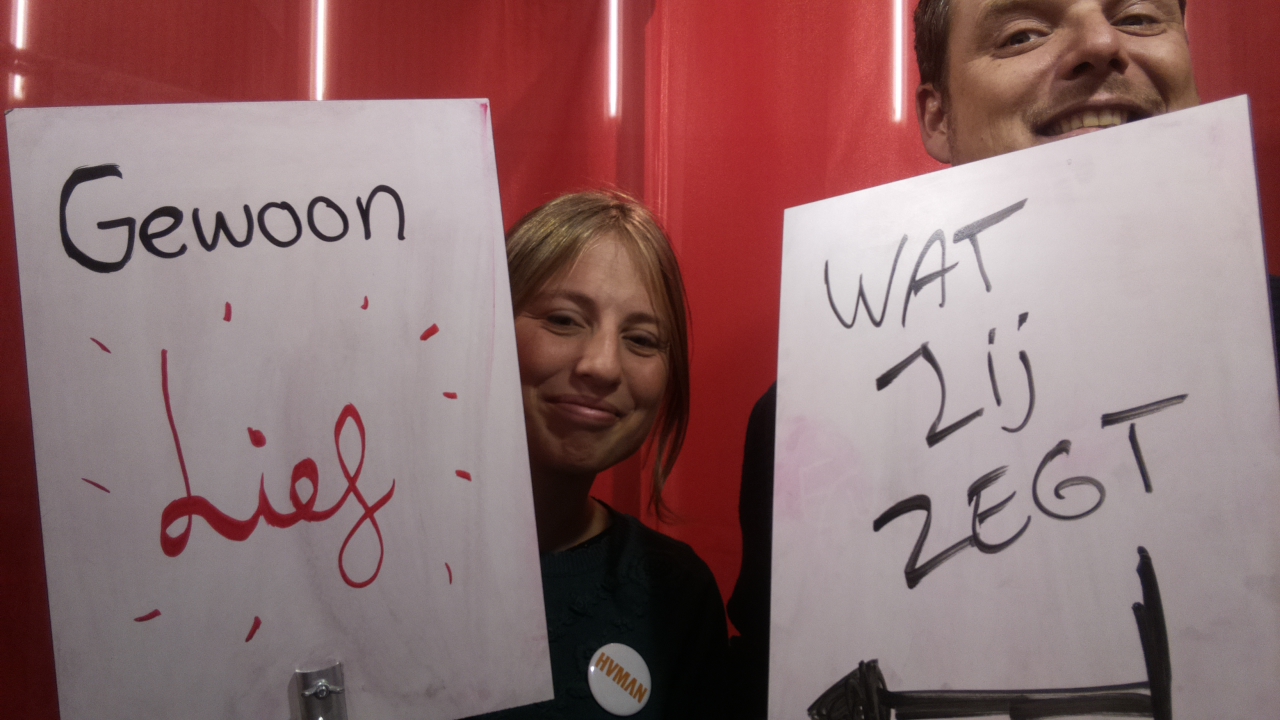 Gewoon
Lief
WAT
Zij
ZEGT
HVMAN